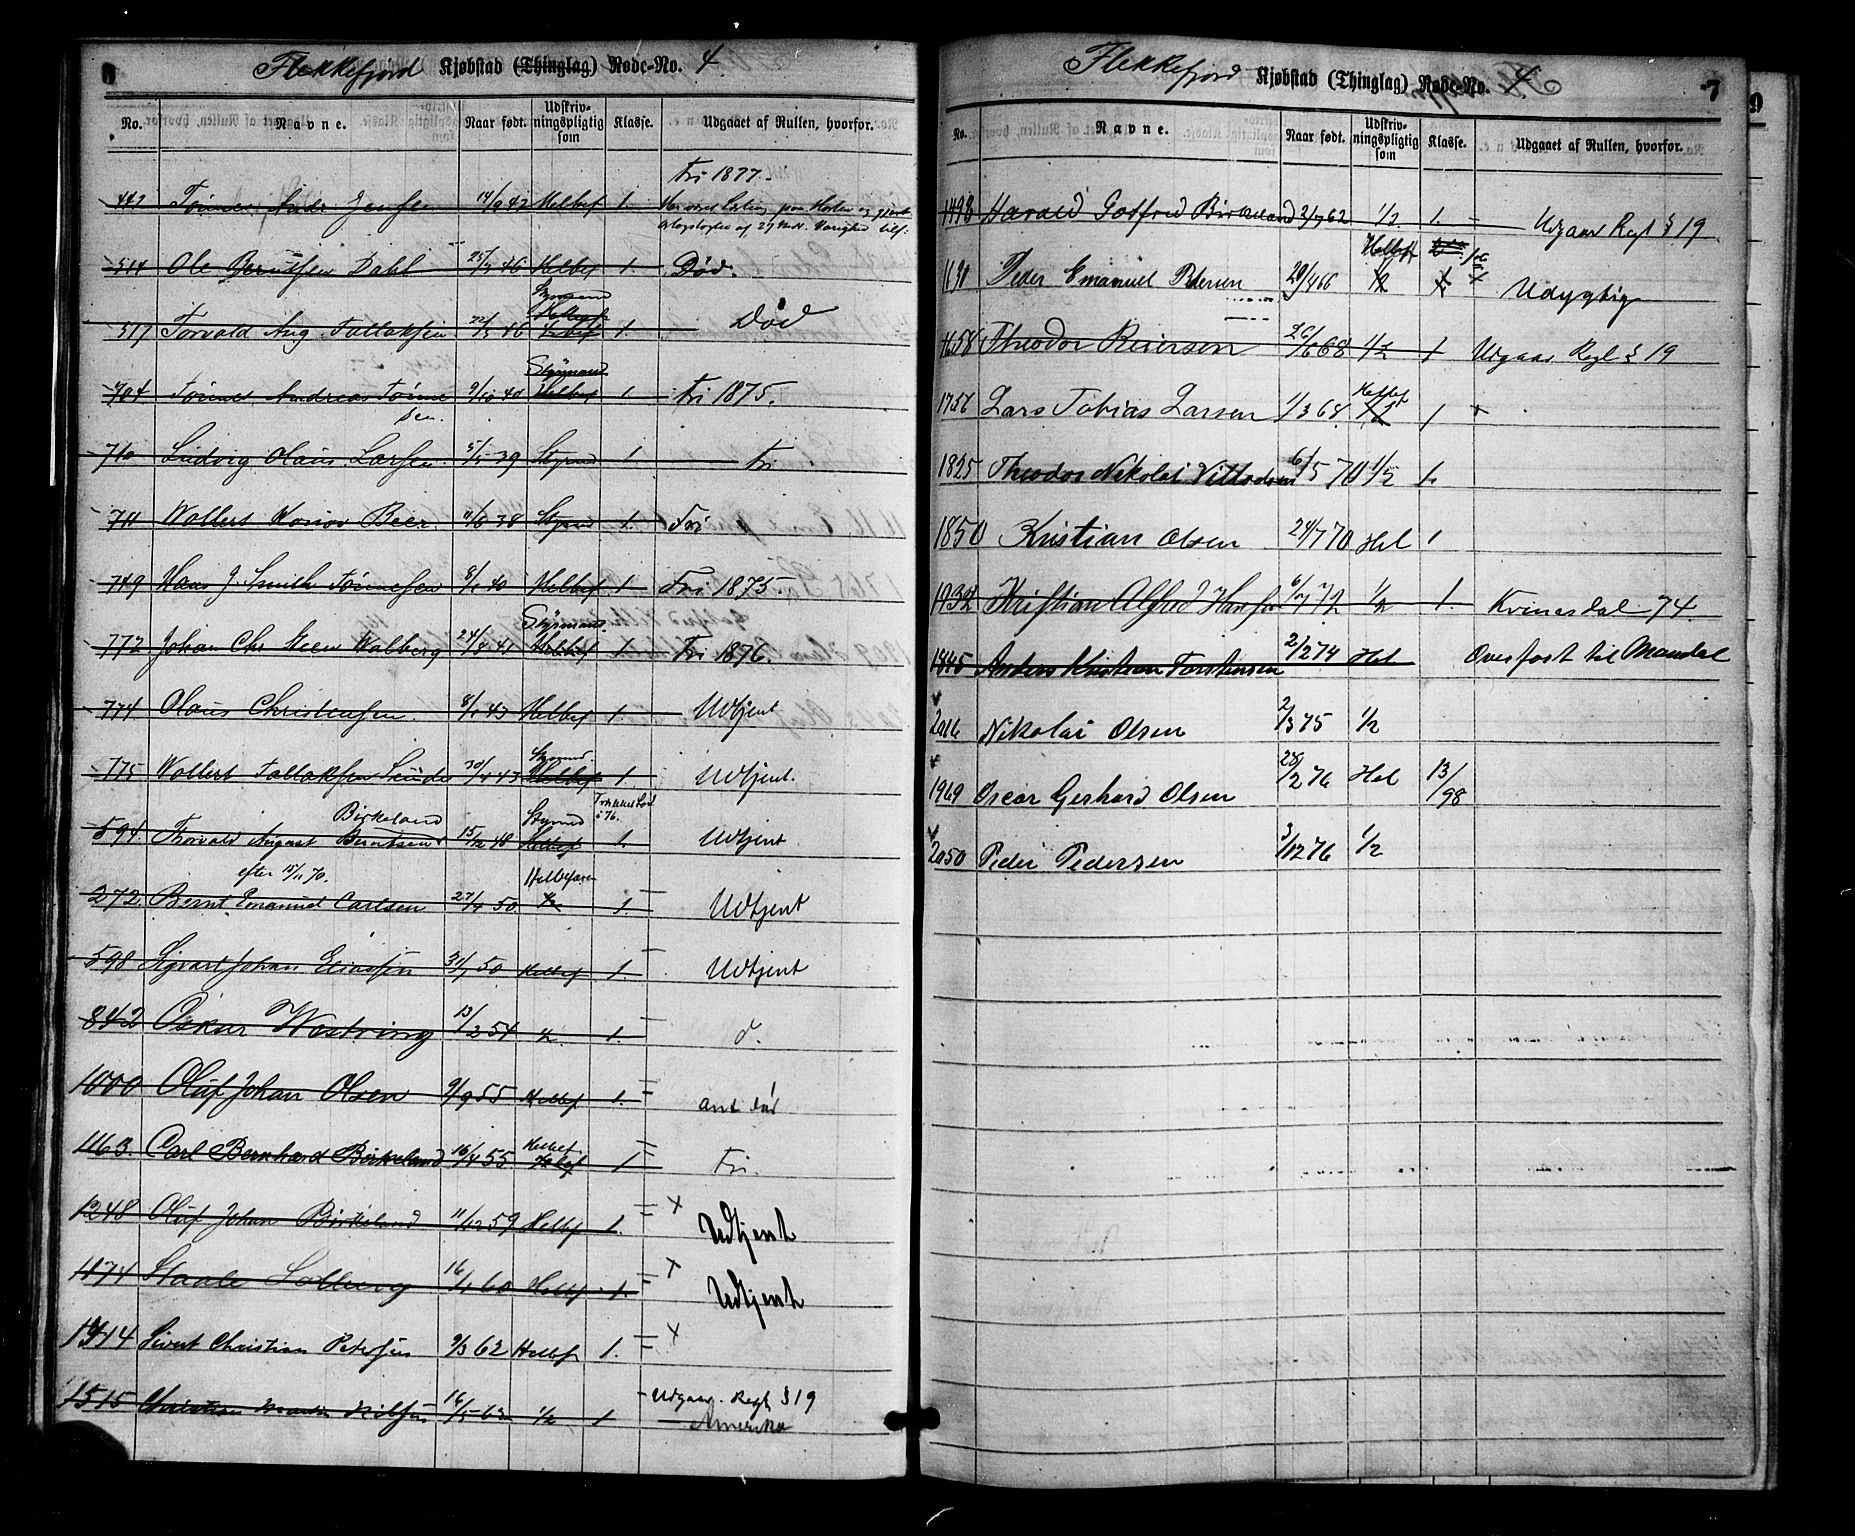 Flekkefjord Kjøbstad (Thinglag) Rode-No. 4
No. Navne. Naar født. Udskriv-ningspligtig som Klasse. Udgaaet af Rullen, hvorfor.
fri 1877.
443 Tønnes Andr Jensen 14/9 42 Helbef 1.
514 Ole Berntsen Dahl 25/3 46 Helbef 1. Død.
Styrmand
Helbef
517 Torvald Aug Tollaksen 22/5 46 1. Død
Styrmand
704 Tønnes Andreas Tønne 9/10 40 Helbef 1 fri 1875.
sen.
710 Ludvig Olaus Larsen 5/5 39 Styrmd 1 fri
711 Wollert Konow Beer 11/6 38 Styrmd 1. Fri
719 Hans J. Smith Tønnesen 8/1 40 Helbef 1 Fri 1875.
Styrmand.
772 Johan Chr Steen Walberg 24/8 41 Helbef 1 Fri 1876.
774 Olaus Christensen 8/1 43 Helbef 1. Udtjent
Styrmd.
775 Wollert Tollaksen Sunde 30/4 43 Helbef 1. Udtjent.
Birkeland Styrmd
594 Thorvald August Berntsen 15/12 48 Helbef 1. Udtjent
efter 15/11 70. Helbefaren
272. Bernt Emanuel Carlsen 27/4 50 1/2 1. Udtjent
598 Sigvart Johan Eliassen 31/1 50 Helbef 1. Udtjent
842 Oskar Westring 13/2 54 1/2 1. d.
1000 Oluf Johan Olsen 9/9 55 Helbef 1. ant død
Helbef
1163. Carl Bernhard Birkeland 16/4 55 1 Fri.
1248 Oluf Johan Birkeland 11/12 59 Helbef 1. = x Udtjent
1174 Staale Solberg 16/1 60 Helbf 1. = x Udtjent
1314 Sivert Christian Petersen 9/3 62 Helbef 1. = x
1515 Christian Martin Nilsen 16/5 62 1/2 1 - Udgaar. Regl §19
Amerika
Flekkefjord Kjøbstad (Thinglag) Rode-No. 4. 7
No. Navne. Naar født. Udskriv-ningspligtig som Klasse. Udgaaet af Rullen, hvorfor.
1498 Harald Godfred Birkeland 3/7 62 1/2 1. = Udgaar Regl § 19
Helbef
1630 Peder Emanuel Pedersen 29/4 66 1/2 Udygtig
1658 Theodor Reiersen 26/6 68 1/2 1 Udgaar Regl § 19
Helbef
1757 Lars Tobias Larsen 1/3 68 1/2 1 x
1825 Theodor Nikolai 6/5 70 1/2 1.
1850 Kristian Olsen 24/7 70 Hel 1
1932 Kristian Alfred Hansen 6/7 72 1/2 1. Kvinesdal 74.
1845 Anders Kristian Torstensen 2/2 74 Hel Overført til Mandal
2016 Nikolai Olsen 2/3 75 1/2
1969 Oscar Gerhard Olsen 28/2 76 Hel 13/98
2050 Peder Pedersen 3/12 76 1/2